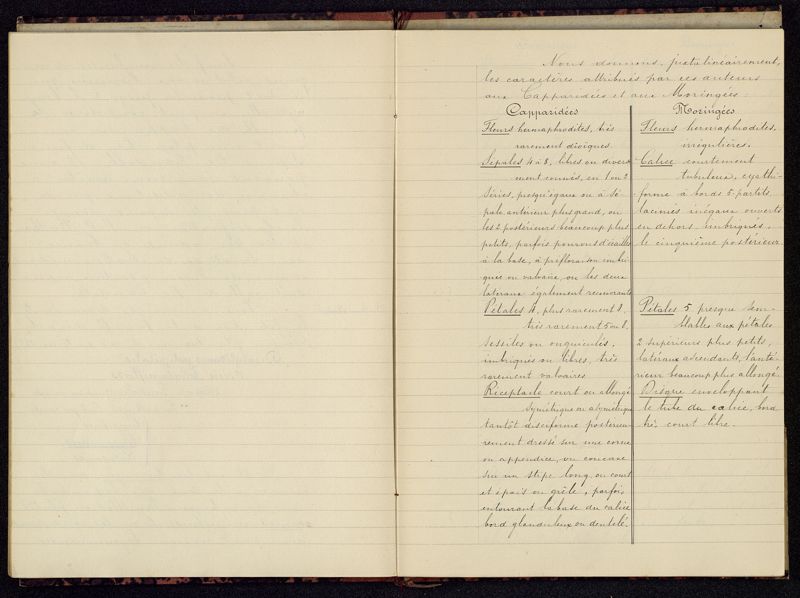 Nous donnons, juxtalinéairement,
les caractères attribués par ces auteurs
aux Capparidées et aux Moringées
Capparidées
Fleurs hermaphrodites, très
rarement dioïques
Sépales 4 à 8, libres ou diverse-
ment connés, en 1 ou 2
séries, presqu'égaux ou à sé-
pale antérieur plus grand, ou
les 2 postérieurs beaucoup plus
petits, parfois pourvus d'écailles
à la base, à préfloraison imbri-
quée ou valvaire, ou les deux
latéraux également recouvrants
Pétales 4, plus rarement 8,
très rarement 5 ou
sessiles ou onguiculés,
imbriqués ou libres, très
rarement valvaires
Réceptacle court ou allongé
symétrique ou asymétrique
tantôt disciforme postérieu-
rement dressé sur une corne
ou appendice, ou concave
sur un stipe long ou court
et épais ou grêle, parfois
entourant la base du calice
bord glanduleux ou dentelé.
Moringées
Fleurs hermaphrodites,
irrégulières.
Calice courtement
tubuleux, cyathi-
forme à bords 5-partits,
laciniés inégaux ouverts
en dehors, imbriqués,
le cinquième postérieur
Pétales 5 presque sem-
blables aux pétales
2 supérieurs plus petits,
latéraux ascendants, l'anté-
rieur beaucoup plus allongé.
Disque enveloppant
le tube du calice, bord
très court libre.